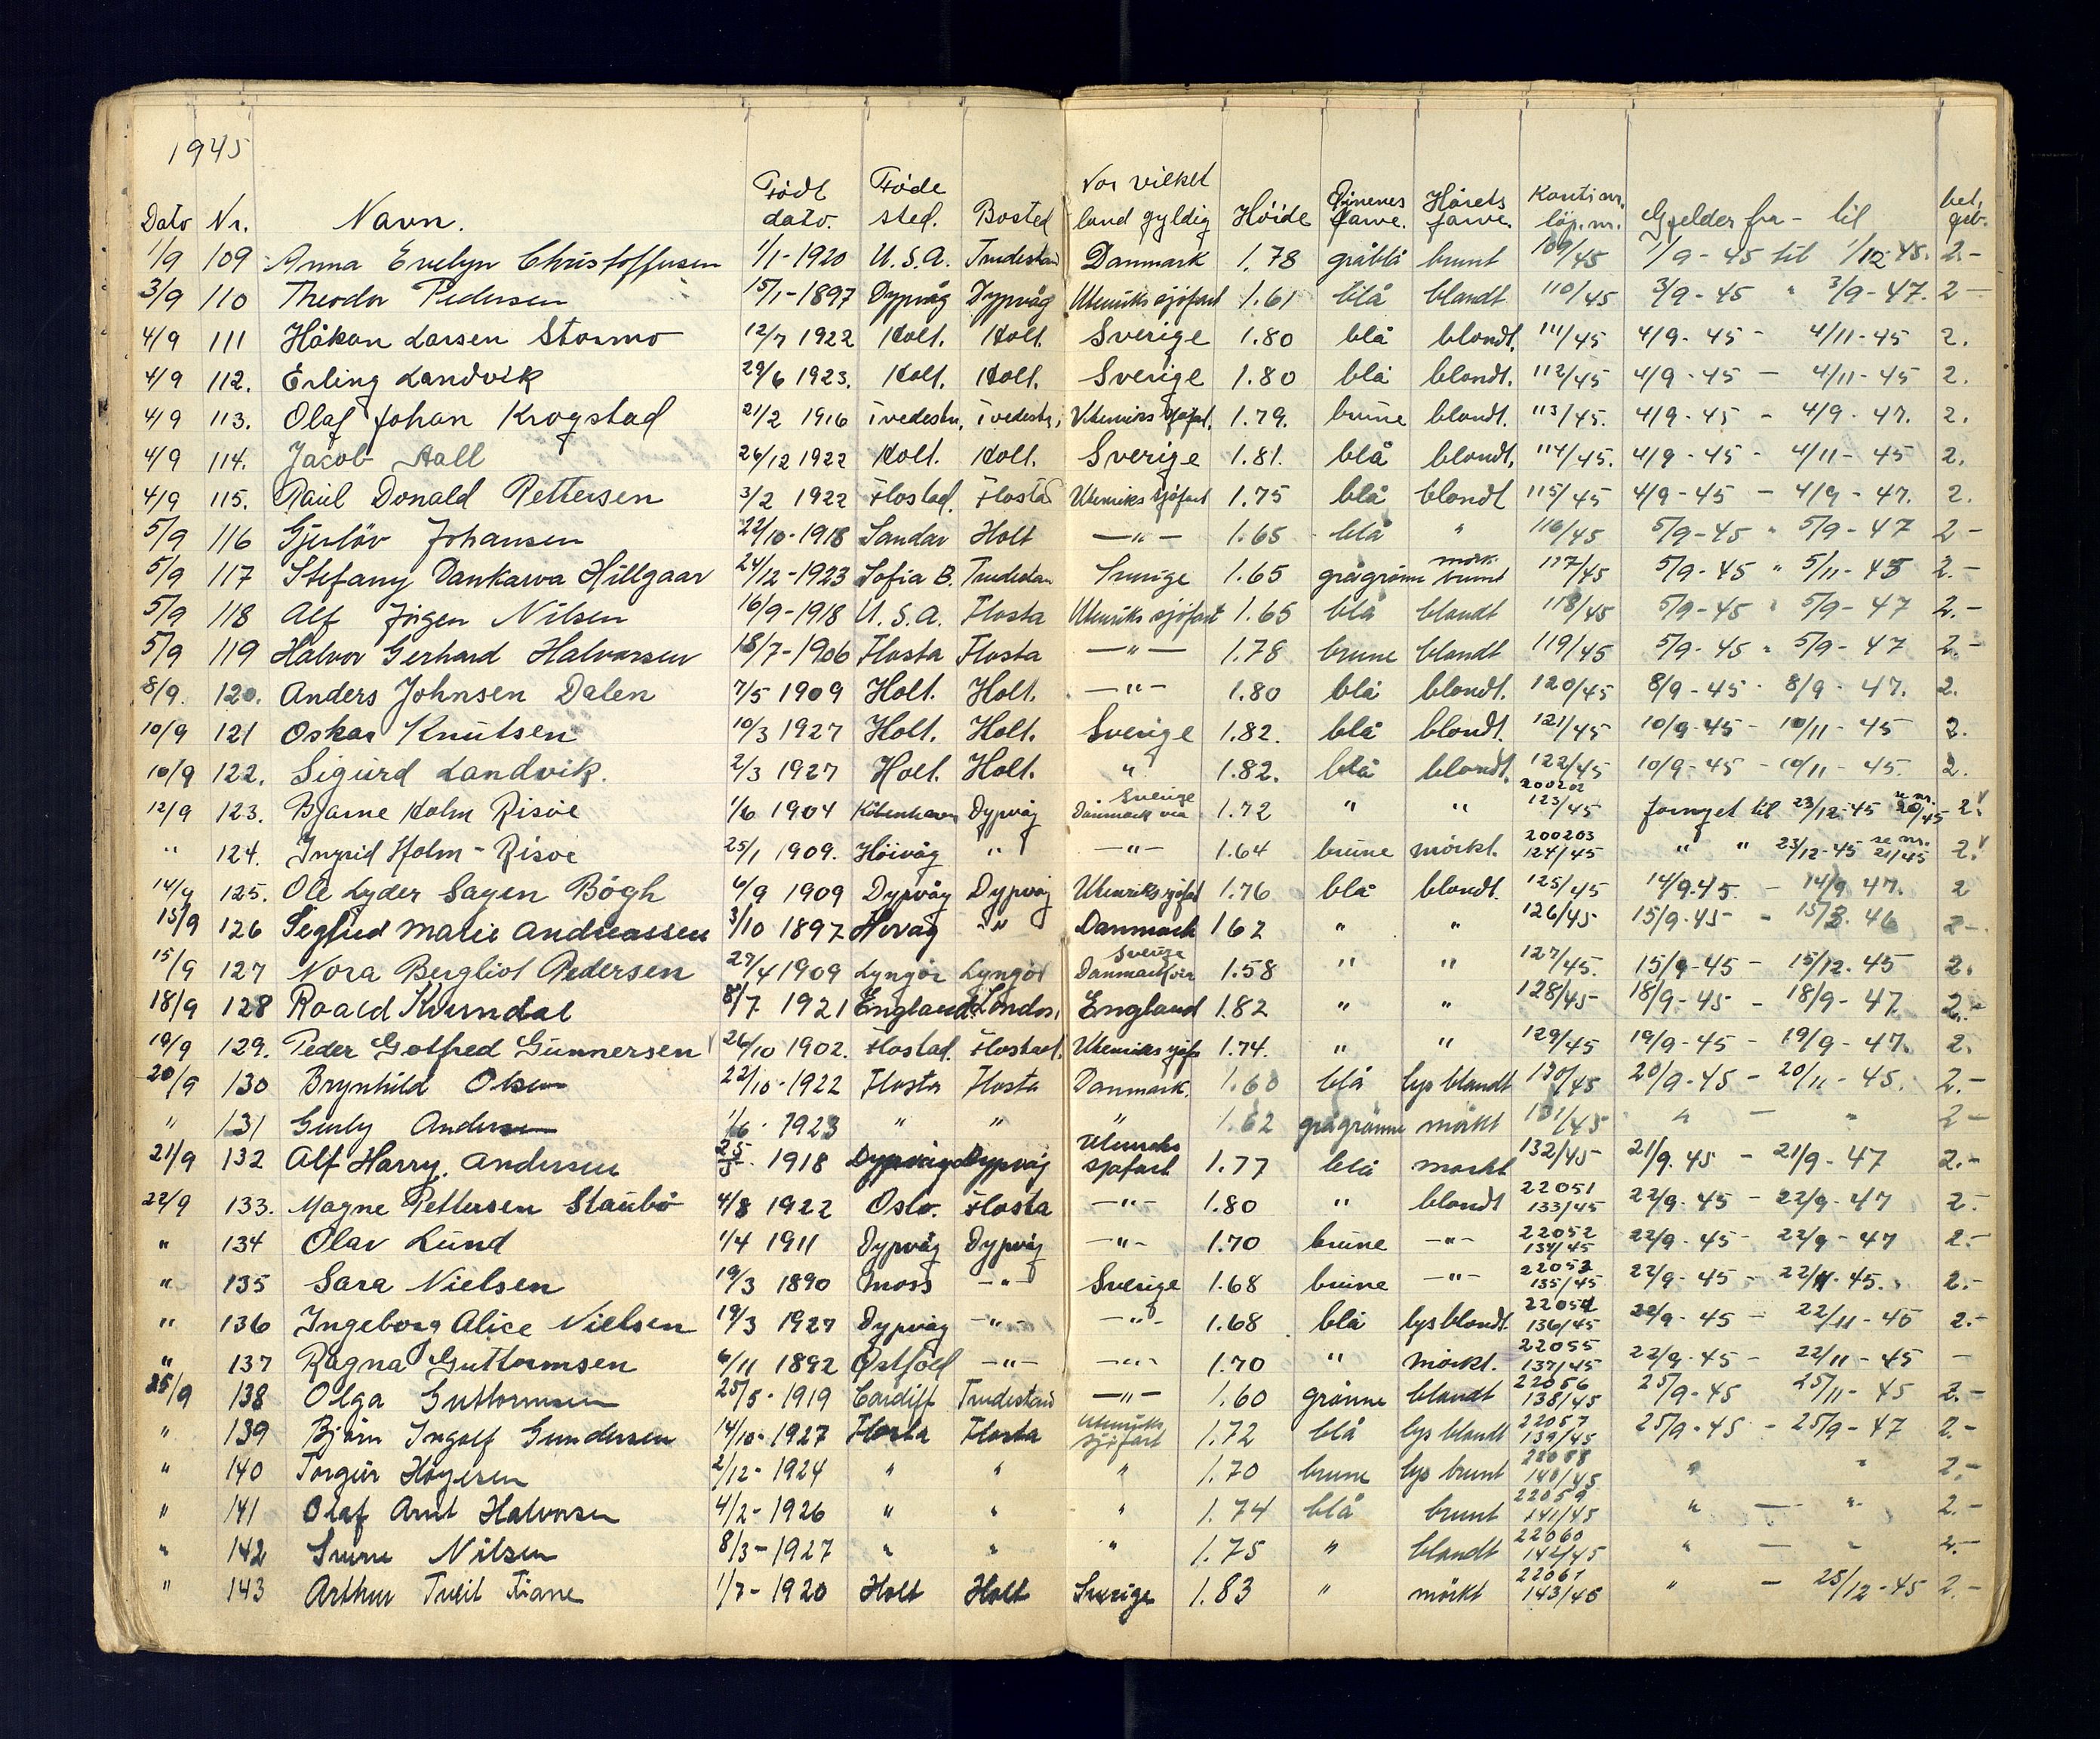 1945
Dato Nr. Navn. Födt dato. Föde sted. Bosted For vilket land gyldig Höide Öinenes farve. Hårets farve. Kontr.nr. löp.nr. Gjelder fra - til bet. geb.
1/9 109 Anna Evelyn Christoffersen 1/1-1920 U.S.A. Tvedestrand Danmark 1.78 gråblå brunt 109/45 1/9-45 til 1/12-45. 2.-
3/9 110 Theodor Pedersen 15/1-1897 Dypvåg Dypvåg Utenriks sjöfart 1.61 blå blandt 110/45 3/9-45 " 3/9-47. 2-
4/9 111 Håkon Larsen Stormo 12/7 1922 Holt. Holt. Sverige 1.80 blå blondt. 111/45 4/9-45 - 4/11-45 2.
4/9 112. Erling Landvik 29/6 1923. Holt. Holt. Sverige 1.80 blå blondt. 112/45 4/9-45 - 4/11-45 2.
4/9 113. Olaf Johan Krogstad 21/2 1916 Tvedestr. Tvedestr. Utenriks sjöfart. 1.79. brune blondt. 113/45. 4/9-45 - 4/9-47. 2.
4/9 114. Jacob Aall 26/12 1922 Holt. Holt. Sverige 1.81. blå blondt. 114/45. 4/9-45 - 4/11-45 2.
4/9 115. Paul Donald Pettersen 3/2 1922 Flostad. Flosta Utenriks sjöfart 1.75 blå blondt 115/45 4/9-45 - 4/9-47. 2.
5/9 116 Gjerlöv Johansen 22/10-1918 Sandar Holt -"- 1.65 blå " 116/45 5/9-45 " 5/9-47 2-
5/9 117 Stefany Dankarva Hillgaar 24/12-1923 Sofia B. Tvedestran Sverige 1.65 grågrönne mörk brunt 117/45 5/9-45 " 5/11-45 2.-
5/9 118 Alf Jörgen Nilsen 16/9-1918 U.S.A. Flosta Utenriks sjöfart 1.65 blå blandt 118/45 5/9-45 " 5/9-47 2.-
5/9 119 Halvor Gerhard Halvorsen 18/7-1906 Flosta Flosta -"- 1.78 brune blandt 119/45 5/9-45 " 5/9-47 2.-
8/9. 120. Anders Johnsen Dalen 7/5 1909 Holt. Holt. -"- 1.80 blå blondt. 120/45 8/9-45 - 8/9-47. 2.
10/9 121 Oskar Knutsen 10/3 1927 Holt. Holt. Sverige 1.82. blå blondt. 121/45 10/9-45 - 10/11-45 2.
10/9 122. Sigurd Landvik. 2/3 1927 Holt. Holt. " 1.82. blå blondt. 122/45 10/9-45 - 10/11-45. 2.
12/9 123. Bjarne Holm Risöe 1/6 1904 Köbenhavn Dypvåg Danmark via Sverige 1.72 " " 200202 123/45 fornyet til 23/12-45 se nr. 20/45 2.
" 124. Ingrid Holm-Risöe 25/1 1909. Höivåg " -"- 1.64 brune mörkt. 200203 124/45 " " 23/12-45 se nr. 21/45 2.
14/9 125. Ole Lyder Sagen Bögh 6/9 1909 Dypvåg Dypvåg Utenriks sjöfart 1.76 blå blondt. 125/45 14/9.45. - 14/9 47. 2
15/9 126 Segfrid Marie Andreassen 3/10 1897 Hövåg -"- Danmark 162 " " 126/45 15/9-45 - 15/3.46 2-
15/9 127 Nora Bergliot Pedersen 27/4 1909 Lyngör Lyngör Danmark via Sverige 1.58 " " 127/45. 15/9-45 - 15/12.45 2.
18/9 128 Roald Kverndal 8/7 1921 England London England 1.82 " " 128/45 18/9-45 - 18/9-47 2.-
19/9 129. Peder Gotfred Gunnersen 26/10 1902. Flostad. Flostad. Utenriks sjöfa 1.74. " " 129/45 19/9-45 - 19/9-47. 2.
20/9 130 Brynhild Olsen 22/10-1922 Flosta Flosta Danmark. 1.60 blå lys blandt 130/45 20/9-45 - 20/11-45. 2.-
" 131 Gurly Andersen 1/6. 1923 " " " 1.62 grågrönne mörkt 131/45 " - " 2-
21/9 132 Alf Harry. Andersen 25/5. 1918 Dypvåg Dypvåg Utenriks sjöfart 1.77 blå mörkt 132/45 21/9.45 - 21/9-47 2.-
22/9 133. Magne Pettersen Staubö 4/8 1922 Oslo. Flosta -"- 1.80 " blondt 22051 133/45 22/9-45 - 22/9-47 2.-
" 134 Olav Lund 1/4 1911 Dypvåg Dypvåg -"- 1.70 brune -"- 22052 134/45 22/9-45 - 22/9-47 2.-
" 135 Sara Nielsen 19/3 1890 Moss -"- Sverige 1.68 brune -"- 22053 135/45 22/9-45 - 22/11-45. 2.-
" 136 Ingeborg Alice Nielsen 19/3 1927 Dypvåg -"- -"- 1.68 blå lysblondt. 22054 136/45 22/9-45 - 22/11-45 2.-
" 137 Ragna Guttormsen 6/11 1892 Østfold -"- -"- 1.70 " mörkt. 22055 137/45 22/9-45 - 22/11-45 -
25/9 138 Olga Guttormsen 25/5-1919 Cardiff Tvedestrand -"- 1.60 grönne blandt 22056 138/45 25/9-45 25/11-45 2.-
" 139 Björn Ingolf Gundersen 14/10-1927 Flosta Flosta Utenriks sjöfart 1.72 blå lys blandt 22057 139/45 25/9-45 - 25/9-47 2.-
" 140 Torgur Høyesen 2/12-1924 " " " 1.70 brune lys brunt 22058 140/45 " " 2.-
" 141 Olaf Arnt Halvorsen 4/2-1926 " " " 1.74 blå brunt 22059 141/45 " - " 2.-
" 142 Sverre Nilsen 8/3-1927 " " " 1.75 " blandt 22060 142/45 " - " 2.-
" 143 Arthur Fiane 1/7-1920 Holt Holt Sverige 1.83 " mörkt 22061 143/45 " - 25/12-45 2.-